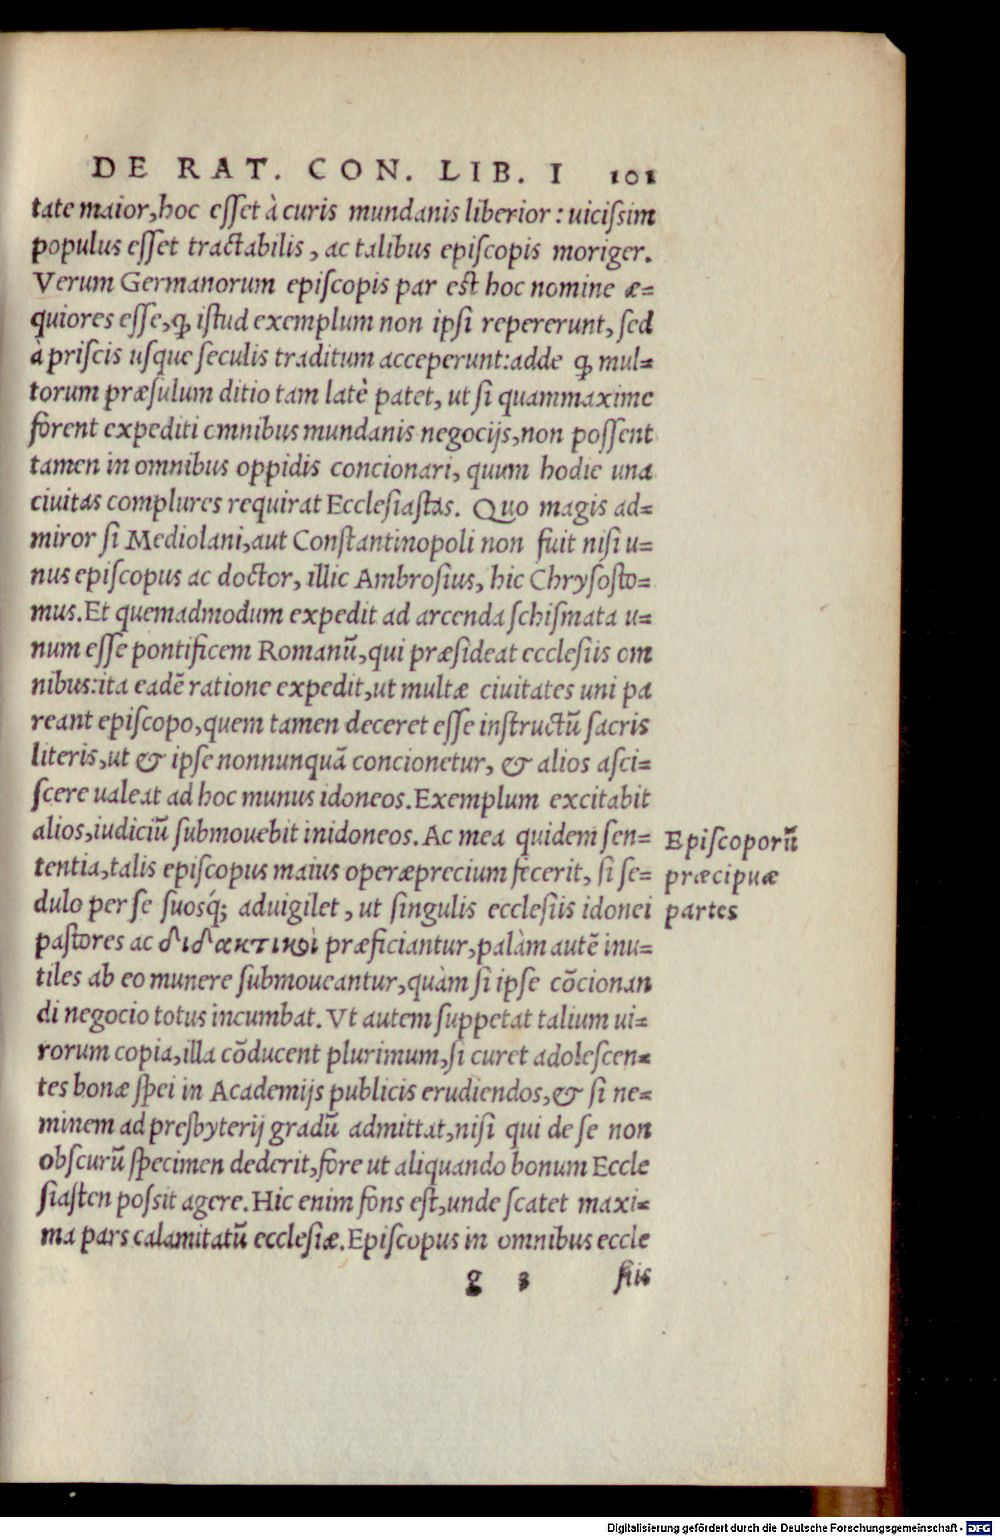 DE RAT. CON. LIB. I 101
tate maior,hoc esset à curis mundanis liberior : uicissim
populus esset tractabilis , ac talibus episcopis moriger.
Verum Germanorum episcopis par est hoc nomine æ=
quiores esse,ꝙ istud exemplum non ipsi repererunt, sed
à priscis usque seculis traditum acceperunt:adde ꝙ mul=
torum præsulum ditio tam latè patet, ut si quammaxime
forent expediti omnibus mundanis negocijs,non possent
tamen in omnibus oppidis concionari, quum hodie una
ciuitas complures requirat Ecclesiastas. Quo magis ad=
miror si Mediolani,aut Constantinopoli non fuit nisi u=
nus episcopus ac doctor, illic Ambrosius, hic Chrysosto=
mus.Et quemadmodum expedit ad arcenda schismata u=
num esse pontificem Romanũ,qui præsideat ecclesiis om
nibus:ita eadẽ ratione expedit,ut multæ ciuitates uni pa
reant episcopo,quem tamen deceret esse instructũ sacris
literis,ut & ipse nonnunquã concionetur, & alios asci=
scere ualeat ad hoc munus idoneos.Exemplum excitabit
alios,iudiciũ submouebit inidoneos.Ac mea quidem sen=
tentia,talis episcopus maius operæprecium fecerit, si se=
dulo per se suosq́; aduigilet , ut singulis ecclesiis idonei
pastores ac διδακτικοὶ præficiantur,palàm autẽ inu=
tiles ab eo munere submoueantur,quàm si ipse cõcionan
di negocio totus incumbat.Vt autem suppetat talium ui=
rorum copia,illa cõducent plurimum,si curet adolescen=
tes bonæ spei in Academijs publicis erudiendos,& si ne=
minem ad presbyterij gradũ admittat,nisi qui de se non
obscurũ specimen dederit,fore ut aliquando bonum Eccle
siasten possit agere.Hic enim fons est,unde scatet maxi=
ma pars calamitatũ ecclesiæ.Episcopus in omnibus eccle
g 3 siis
Episcoporũ
præcipuæ
partes
Digitalisierung gefördert durch die Deutsche Forschungsgemeinschaft - DFG